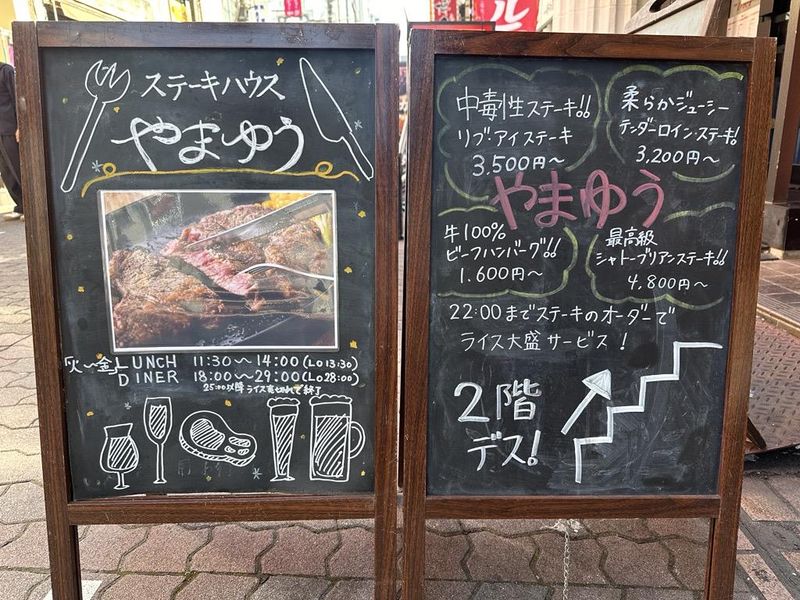 ステーキハウス
やまゆう
(火～金) LUNCH 11:30～14:00 (LO 13:30)
DINER 18:00～29:00 (Lo 28:00)
25:00以降 ライス売切れで終了
中毒性ステーキ!!
リブ・アイステーキ
3,500円～
柔らかジューシー
テンダーロイン・ステーキ!
3,200円～
やまゆう
牛100%
ビーフハンバーグ!!
1.600円～
最高級
シャトーブリアンステーキ!!
4,800円～
22:00までステーキのオーダーで
ライス大盛サービス!
2階
デス!